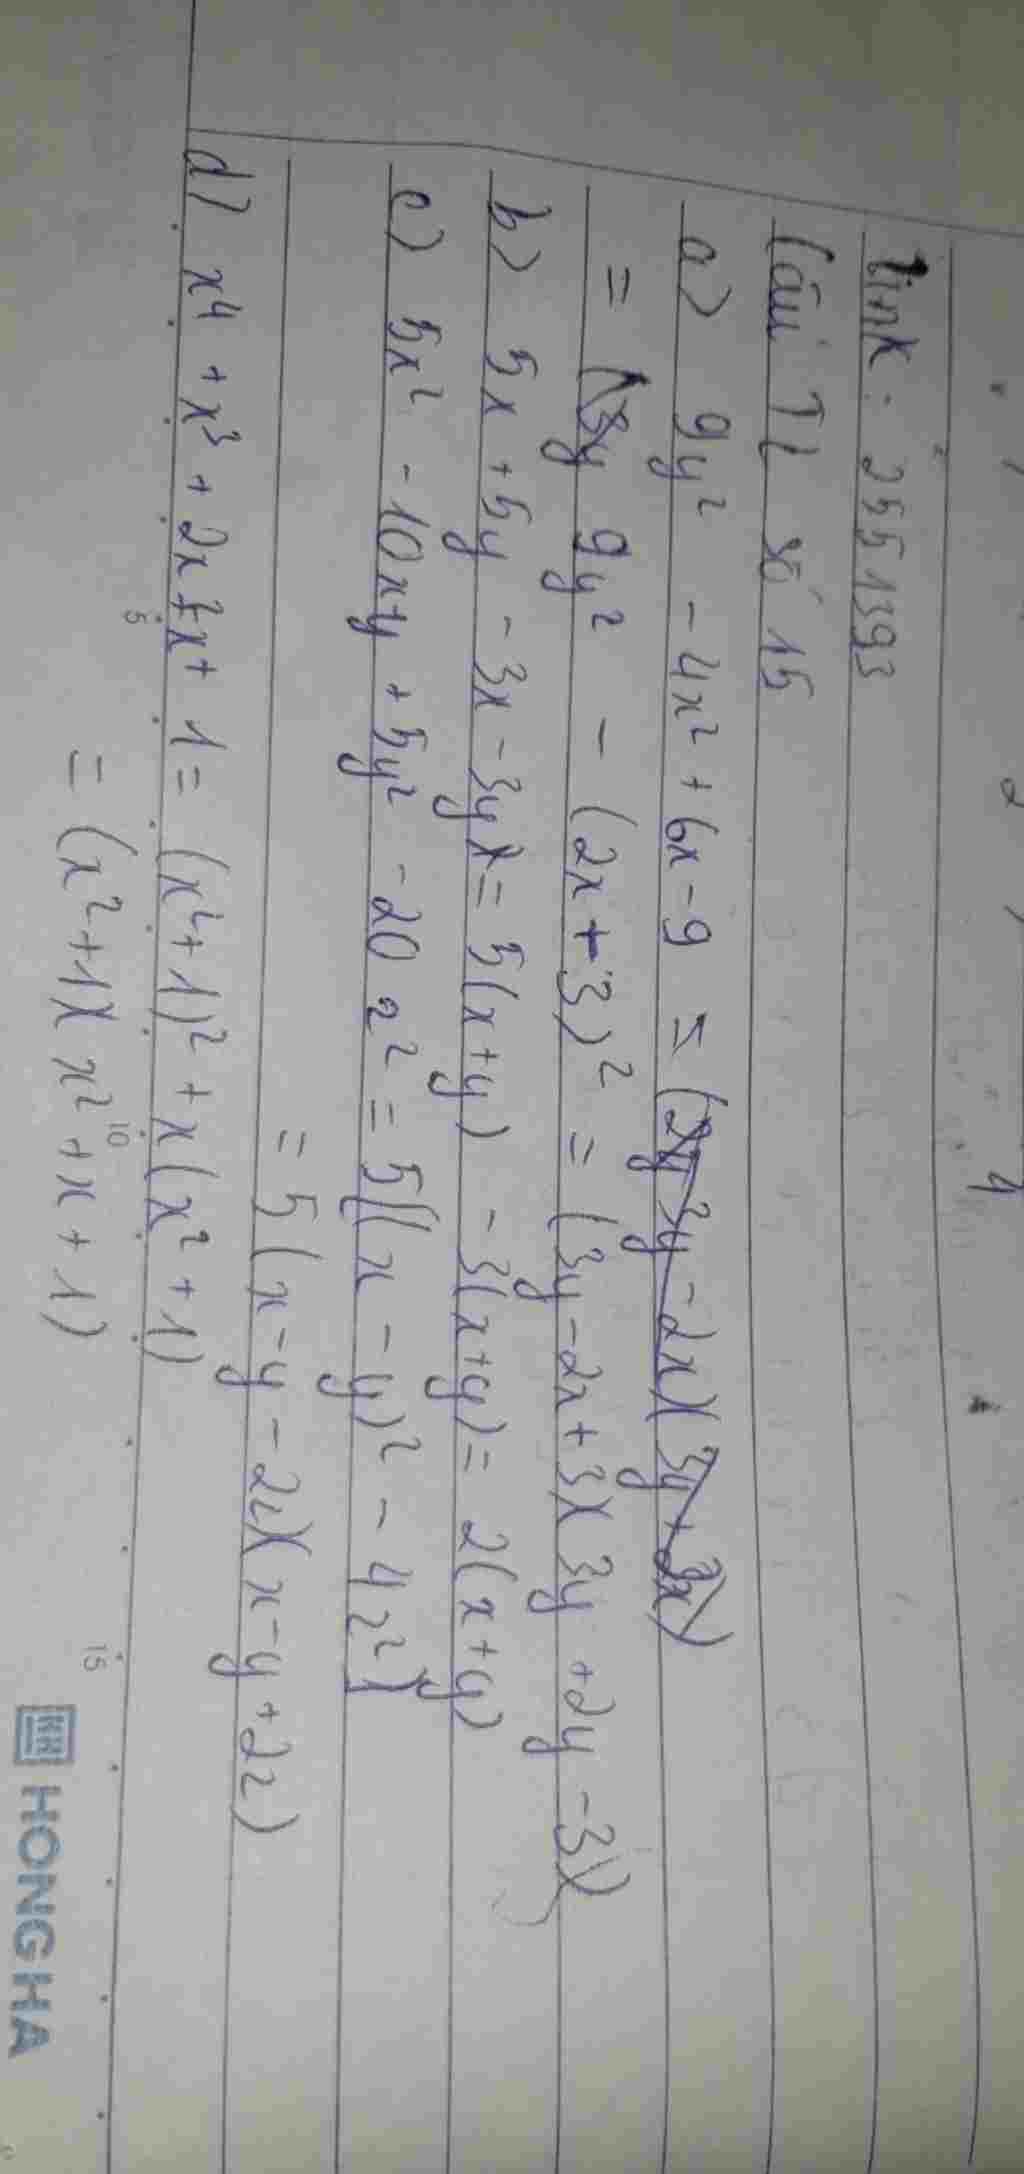 link: 2551393
Câu TL số 15
a) 9y² - 4x² + 6x - 9 =
= 9y² - (2x + 3)² = (3y - 2x + 3)(3y + 2y - 3)
b) 5x + 5y - 3x - 3y = 5(x+y) - 3(x+y) = 2(x+y)
c) 5x² - 10xy + 5y² - 20z² = 5[(x - y)² - 4z²]
= 5(x - y - 2z)(x - y + 2z)
d) x⁴ + x³ + 2x² + x + 1 = (x² + 1)² + x(x² + 1)
= (x² + 1)(x² + x + 1)
5 10 15
HONG HA